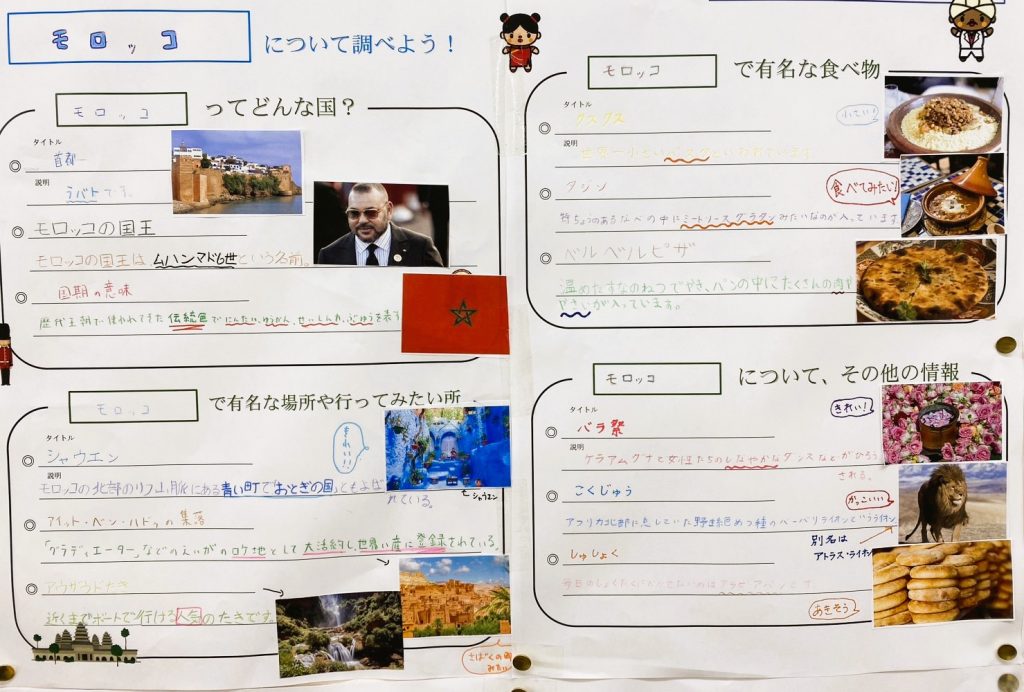 モロッコ について調べよう！
モロッコ ってどんな国？
タイトル
首都
説明
ラバトです。
モロッコの国王
モロッコの国王はムハンマド6世という名前。
国期の意味
歴代王朝で使われてきた伝統色でにんたい、ゆうかん、
を表す
モロッコ で有名な場所や行ってみたい所
タイトル
シャウエン
きれい!!
説明
モロッコの北部のリフ山脈にある青い町で「おとぎの国」ともよば
れている。
シャウエン
アイット・ベン・ハドゥの集落
「グラディエーター」などのえいがのロケ地として大活やくし、世界い産に登録されている。
アウザウドたき
近くまでボートで行ける人気のたきです。
さばくの町
みたい
モロッコ で有名な食べ物
タイトル
クスクス
小さい！
説明
世界一小さいパスタといわれています。
タジン
食べてみたい！
特ちょうのあるなべの中にミートソースグラタンみたいなのが入っています
ベルベルピザ
温めたすなのねつでやき、パンの中にたくさんの肉や
やさいが入っています。
モロッコ について、その他の情報
タイトル
バラ祭
きれい！
説明
ケラアムグナで女性たちのしなやかなダンスなどがひろう
される。
こくじゅう
かっこいい
アフリカ北部に息していた野生絶めつ種のバーバリライオンというライオン
別名は
アトラス・ライオン
しゅしょく
今日のしょくたくにかかせないのはアラビアパンです
あきそう